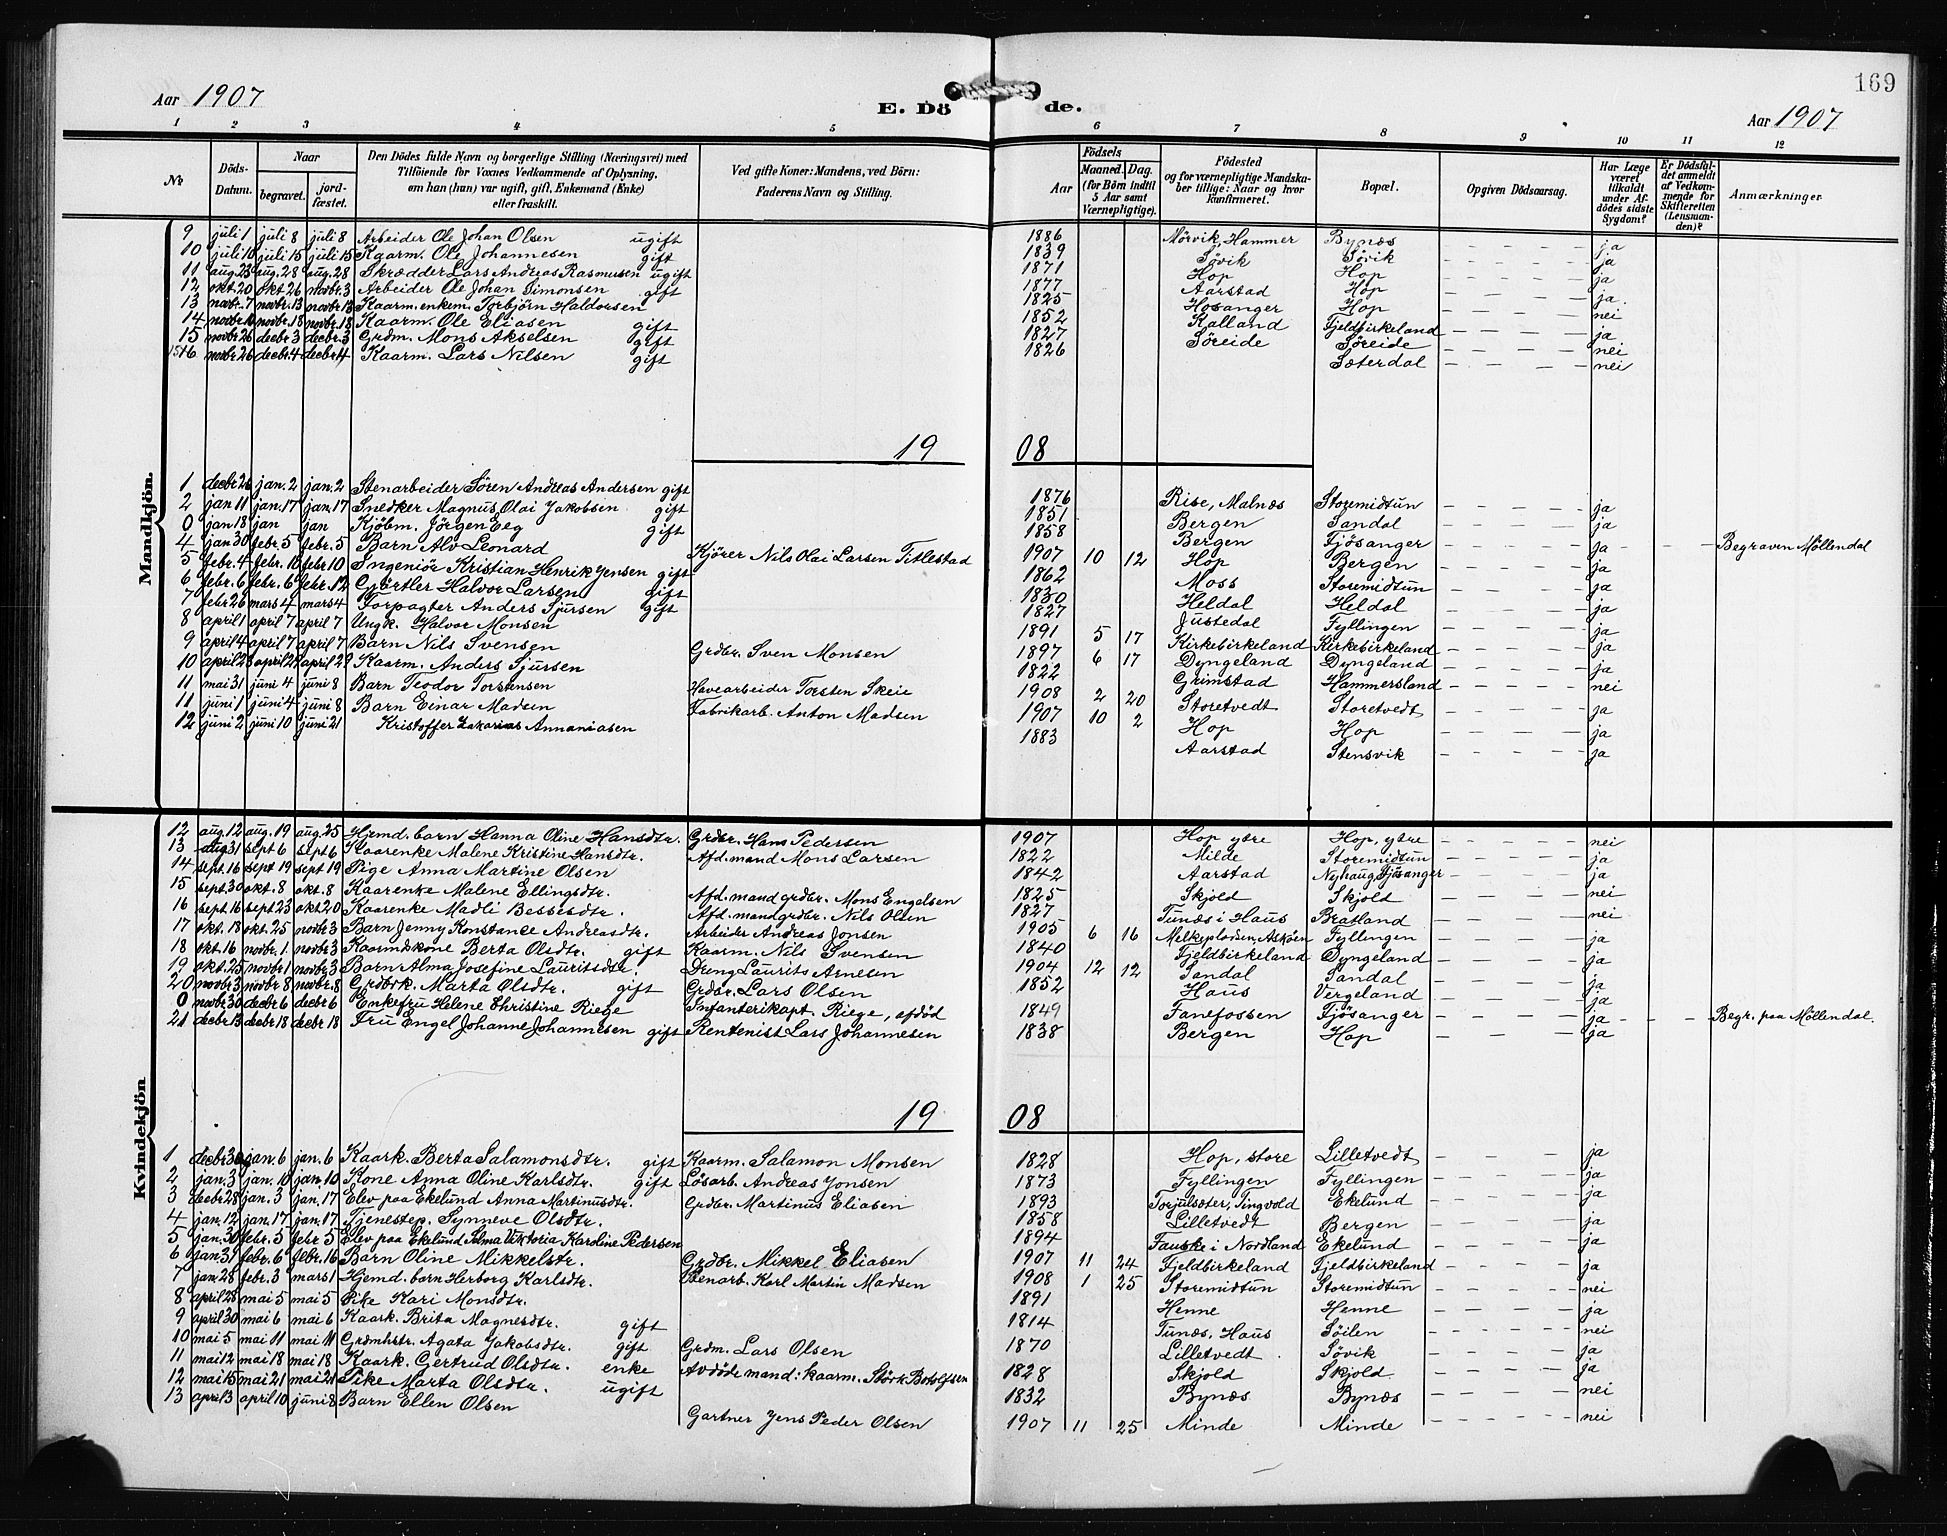 169
Aar 1907 E. Dö de. Aar 1907
1 2 3 4 5 6 7 8 9 10 11 12
№ Döds-Datum. Naar begravet. jordfæstet. Den Dödes fulde Navn og borgerlige Stilling (Næringsvei) med Tilföiende for Voxnes Vedkommende af Oplysning, om han (hun) var ugift, gift, Enkemand (Enke) eller fraskilt. Ved gifte Koner: Mandens, ved Börn: Faderens Navn og Stilling. Födsels Aar Maaned. Dag. (for Börn indtil 5 Aar samt Værnepligtige). Födested og for værnepligtige Mandskaber tillige: Naar og hvor konfirmeret. Bopæl. Opgiven Dödsaarsag. Har Læge været tilkaldt under Afdödes sidste Sygdom? Er Dödsfaldet anmeldt af Vedkommende for Skifteretten (Lensmanden)? Anmærkninger
Mandkjön.
9 juli 1 juli 8 juli 8 Arbeider Ole Johan Olsen ugift 1886 Mörvik, Hammer Bynæs ja
10 juli 10 juli 15 juli 15 Kaarm. Ole Johannesen gift 1839 Sövik Sövik ja
11 aug. 23 aug. 28 aug. 28 Skrædder Lars Andreas Rasmusen ugift 1871 Hop Hop ja
12 okt. 20 okt 26 novbr. 3 Arbeider Ole Johan Simonsen gift 1877 Aarstad Hop ja.
13 novbr. 7 novbr. 13 novbr. 13 Kaarm. enkem. Torbjörn Haldorsen 1825 Hosanger Hop nei
14 novbr. 10 novbr. 18 novbr. 18 Kaarm. Ole Eliasen gift 1852 Kalland Fjeldbirkeland ja
15 novbr 26 decbr 3 decbr. 3 Grdm. Mons Akselsen gift 1827 Söreide Söreide nei
16 novbr 26 decbr 4 decbr 4 Kaarm. Lars Nilsen gift 1826 Sæterdal nei
19 08
1 decbr 26 jan. 2 jan. 2 Stenarbeider Sören Andreas Andersen gift 1876 Rise, Malnæs Storemidtun ja
2 jan 11 jan. 17 jan. 17 Snedker Magnus Olai Jakobsen gift 1851 Bergen Sandal ja
0 jan 18 jan jan Kjöbm. Jörgen Eeg gift 1858 Bergen Fjösanger ja Begraven Möllendal
4 jan 30 febr. 5 febr. 5 Barn Alv Leonard Kjörer Nils Olai Larsen Titlestad 1907 10 12 Hop Bergen ja
5 febr. 4 febr. 10 febr 10 Ingeniör Kristian Henrik Jensen gift 1862 Moss Storemidtun ja
6 febr. 6 febr. 6 febr. 12 Gjörtler Halvor Larsen gift 1830 Heldal Heldal ja
7 febr 26 mars 4 mars 4 Forpagter Anders Sjursen gift 1827 Justedal Fyllingen ja
8 april 1 april 7 april 7 Ungk. Halvor Monsen 1891 5 17 Kirkebirkeland Kirkebirkeland ja
9 april 4 april 7 april 7 Barn Nils Svensen Grdbr. Sven Monsen 1897 6 17 Dyngeland Dyngeland ja
10 april 23 april 29 april 29 Kaarm. Anders Sjursen 1822 Grimstad Hammersland nei
11 mai 31 juni 4 juni 8 Barn Teodor Torstensen Havearbeider Torsten Skeie 1908 2 20 Storetvedt Storetvedt ja
11 juni 1 juni 4 juni 8 Barn Einar Madsen Fabrikarb. Anton Madsen 1907 10 2 Hop Hop ja
12 juni 2 juni 10 juni 21 Kristoffer Zakarias Annaniasen 1883 Aarstad Stensvik ja
Kvindekjön
12 aug. 12 aug. 19 aug. 25 Hjemd. barn Hanna Oline Hansdtr. Grdbr. Hans Pedersen 1907 Hop ytre Hop, ytre nei
13 aug 31 sept 6 sept 6 Kaarenke Malene Kristine Hansdtr. Afd. mand Mons Larsen 1822 Milde Storemidtun ja
14 sept. 16 sept 19 sept 19 Pige Anna Martine Olsen 1842 Aarstad Nyhaug, Fjösanger ja
15 sept. 30 okt. 8 okt. 8 Kaarenke Malene Ellingsdtr. Afd. mand grdbr. Mons Engelsen 1825 Skjold Skjold nei
16 sept. 16 sept 23 okt 20 Kaarenke Madli Bessesdtr. Afd. mand grdbr. Nils Olsen 1827 Tunæs i Haus Bratland nei
17 okt. 18 okt. 25 novbr 3 Barn Jenny Konstance Andreasdtr. Arbeider Andreas Jonsen 1905 6 16 Melkeplassen, Asköen Fyllingen ja
18 okt. 16 novbr. 1 novbr. 3 Kaarmdskone Berta Olsdtr. gift Kaarm. Nils Svensen 1840 Fjeldbirkeland Dyngeland ja
19 okt. 25 novbr 1 novbr. 3 Barn Alma Josefine Lauritsdtr. Dreng Laurits Arnesen 1904 12 12 Sandal Sandal ja
20 novbr 3 novbr 8 novbr. 8 Grdbrk. Marta Olsdtr. gift Grdbr. Lars Olsen 1852 Haus Vergeland ja
0 novbr 30 decbr 6 decbr 6 Enkefru Helene Christine Riege Infanterikapt. Riege, afdöd 1849 Fanefossen Fjösanger ja Begr. paa Möllendal.
21 decbr 13 decbr 18 decbr 18 Fru Engel Johanne Johannesen gift Rentenist Lars Johannesen 1838 Bergen Hop ja
19 08
1 decbr 30 jan. 6 jan. 6 Kaark. Berta Salamonsdtr. gift Kaarm. Salamon Monsen 1828 Hop, store Lilletvedt ja
2 jan. 3 jan. 10 jan. 10 Kone Anna Oline Karlsdtr. gift Lösarb. Andreas Jonsen 1873 Fyllingen Fyllingen ja
3 decbr 28 jan. 3 jan. 17 Elev paa Ekelund Anna Martinusdtr. Grdbr. Martinus Eliasen 1893 Torjulsæter, Tingvold Ekelund ja
4 jan. 12 jan. 17 jan. 17 Tjenestep. Synneve Olsdtr. 1858 Lilletvedt Bergen ja
5 jan. 30 febr. 5 febr 5 Elev paa Ekelund Selma Viktoria Karoline Pedersen 1894 Fauske i Nordland Ekelund ja
6 jan 31 febr. 6 febr. 16 Barn Oline Mikkelstr. Grdbr. Mikkel Eliasen 1907 11 24 Fjeldbirkeland Fjeldbirkeland ja
7 jan. 28 febr. 3 mars 1 Hjemd. barn Herborg Karlsdtr. Stenarb. Karl Martin Madsen 1908 1 25 Storemidtun Storemidtun nei
8 april 28 mai 5 mai 5 Pike Kari Monsdtr. 1891 Henne Henne ja
9 april 30 mai 6 mai 6 Kaark. Brita Magnesdtr. gift 1814 Tunæs, Haus Söilen nei
10 mai 5 mai 11 mai 11 Grdmhstr. Agata Jakobsdtr. gift Grdm. Lars Olsen 1870 Lilletvedt Sövik ja
11 mai 12 mai 18 mai 18 Kaark. Gertrud Olsdtr. enke Avdöde mand: kaarm. Störk Botolfsen 1828 Skjold Skjold ja
12 mai 15 mai 21 mai 21 Pike Marta Olsdtr. ugift 1832 Bynæs Bynæs nei
13 april 3 april 10 juni 8 Barn Ellen Olsen Gartner Jens Peder Olsen 1907 11 25 Minde Minde nei